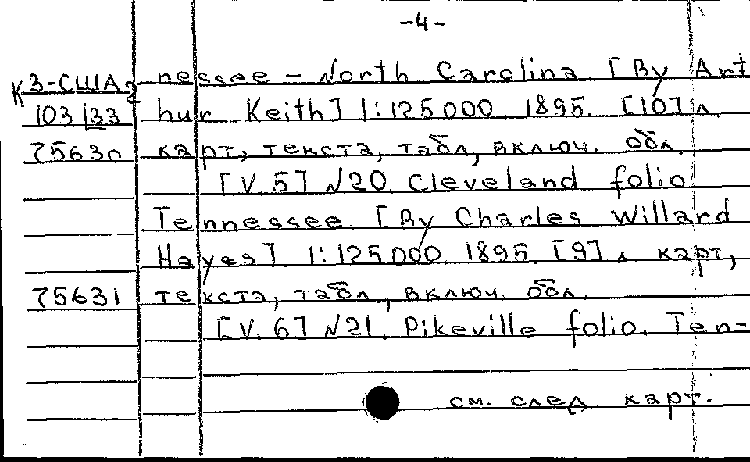 -4-
К3-США2 nessee - North Carolina [By Art
103133 hur Keith] 1:125000 1895. [10] л.
75630 карт, текста, табл, включ. обл.
[V.5] №20 Cleveland folio
Tennessee. [By Charles Willard
Hayes] 1:125000 1895. [9] л карт,
75631 текста, табл, включ. обл.
[V. 6] №21. Pikeville folio. Ten-
см. след карт.